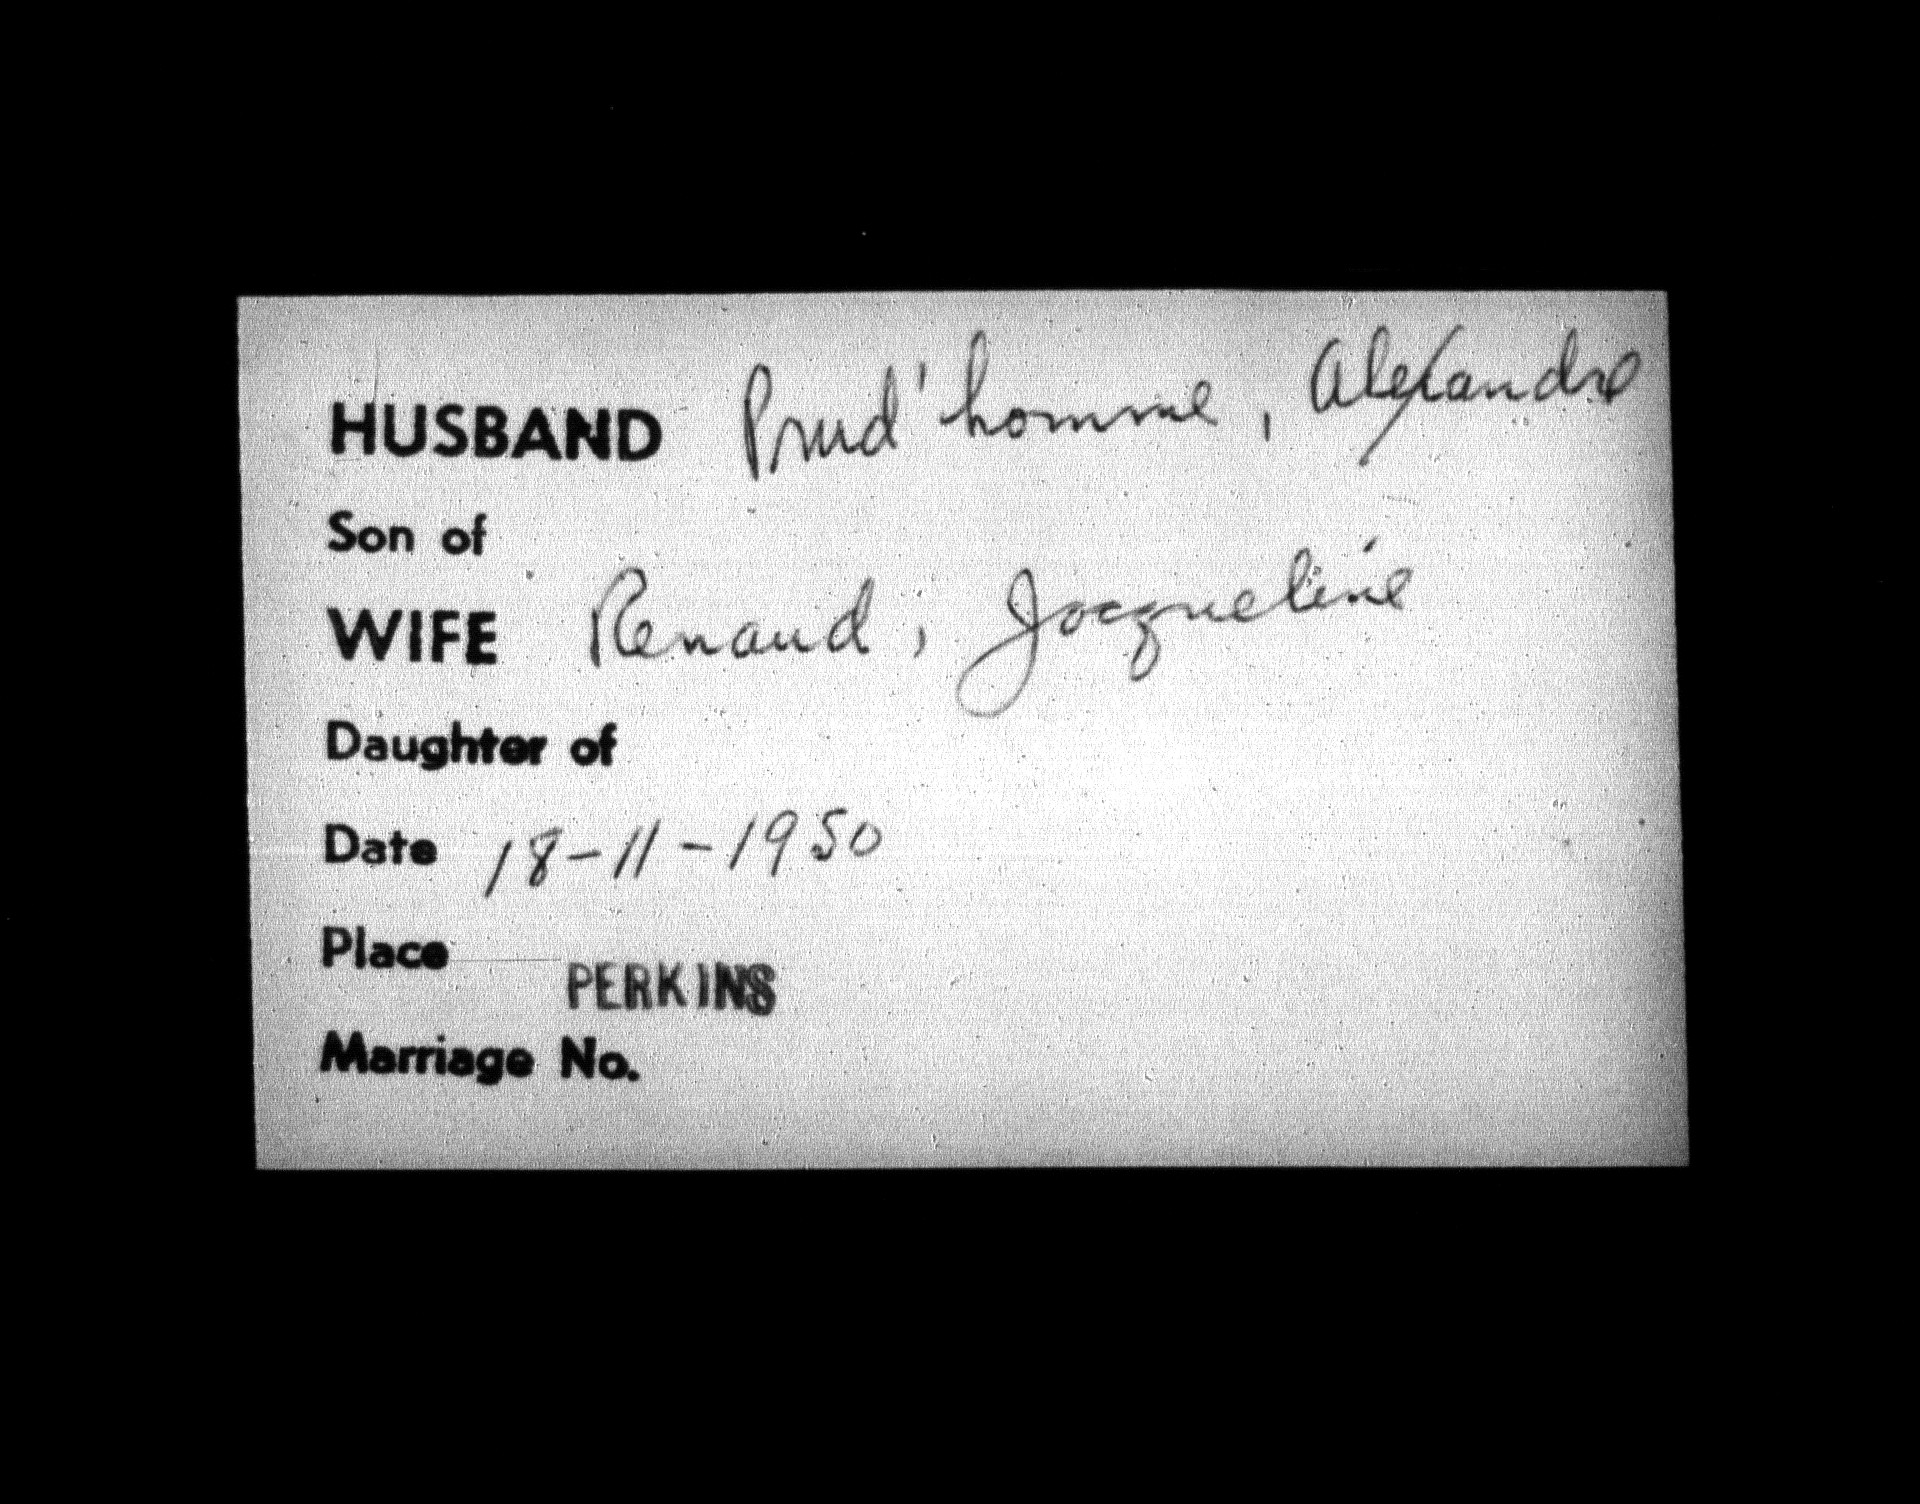 HUSBAND Prud'homme, Alexandre
Son of
WIFE Renaud, Jacqueline
Daughter of
Date 18-11-1950
Place PERKINS
Marriage No.